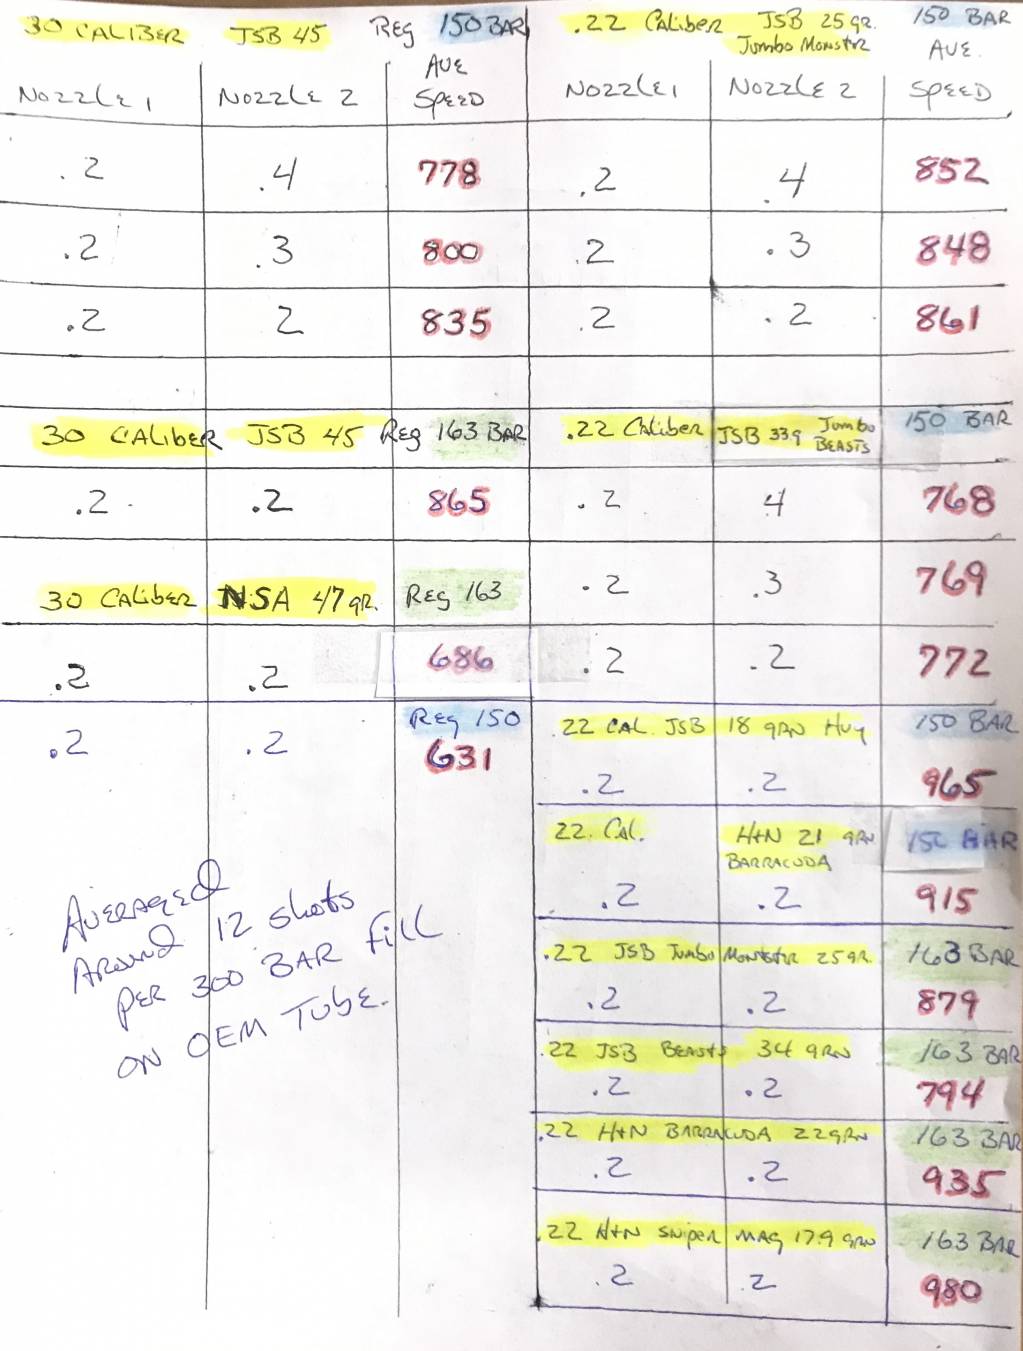 30 CALIBER JSB 45 REG 150 BAR
NOZZLE 1 NOZZLE 2 AVE SPEED
.2 .4 778
.2 .3 800
.2 2 835
30 CALIBER JSB 45 REG 163 BAR
.2 .2 865
30 CALIBER NSA 47 gR. REG 163
.2 .2 686
REG 150
.2 .2 631
AVERAGED
AROUND 12 SHOTS
PER 300 BAR FILL
ON OEM TUBE.
.22 CALIBER JSB 25 gR. 150 BAR
JUMBO MONSTR AVE.
NOZZLE 1 NOZZLE 2 SPEED
.2 .4 852
.2 .3 848
.2 .2 861
.22 CALIBER JSB 33g JUMBO BEASTS 150 BAR
.2 4 768
.2 .3 769
.2 .2 772
.22 CAL. JSB 18 gRN Hvy 150 BAR
.2 .2 965
22. CAL. H+N 21 gRN 150 BAR
BARRACUDA
.2 .2 915
.22 JSB JUMBO MONSTR 25 gR. 163 BAR
.2 .2 879
.22 JSB BEASTS 34 gRN 163 BAR
.2 .2 794
.22 H+N BARRACUDA 22 gRN 163 BAR
.2 .2 935
.22 H+N SNIPER MAG 17.9 gRN 163 BAR
.2 .2 980